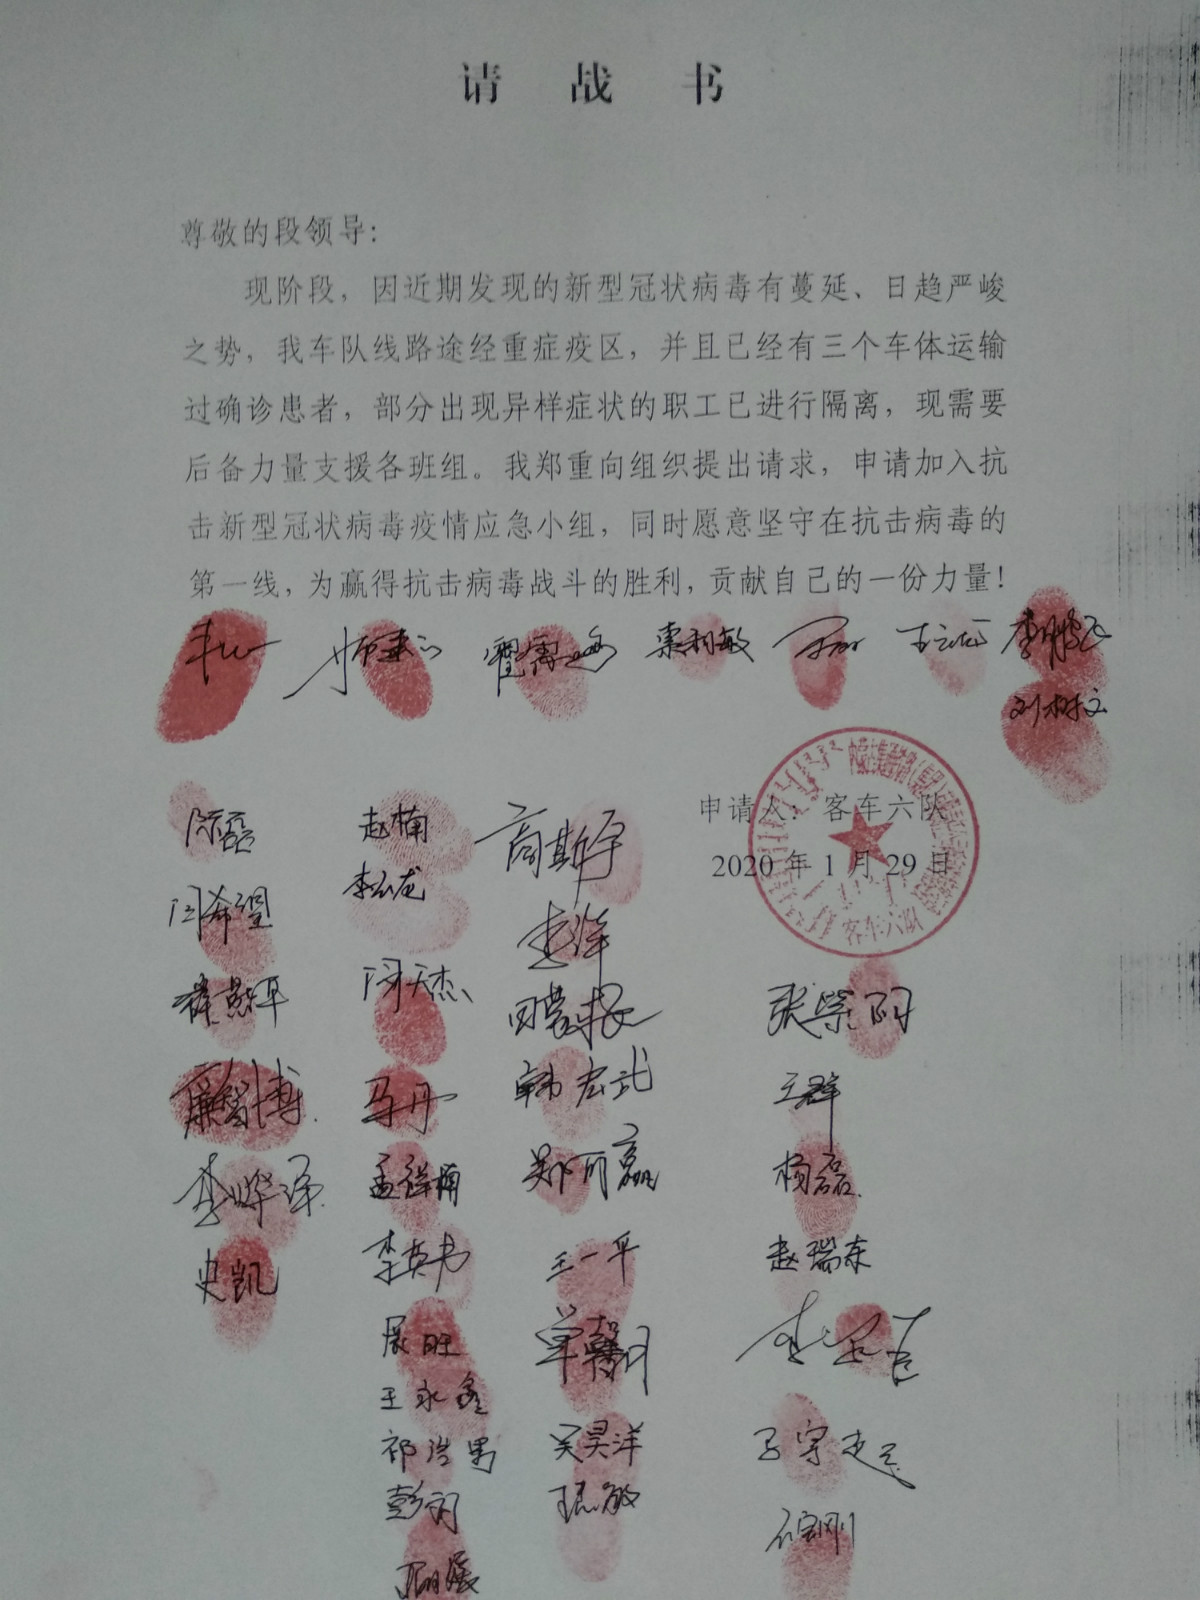 请战书
尊敬的段领导：
现阶段，因近期发现的新型冠状病毒有蔓延、日趋严峻
之势，我车队线路途经重症疫区，并且已经有三个车体运输
过确诊患者，部分出现异样症状的职工已进行隔离，现需要
后备力量支援各班组。我郑重向组织提出请求，申请加入抗
击新型冠状病毒疫情应急小组，同时愿意坚守在抗击病毒的
第一线，为赢得抗击病毒战斗的胜利，贡献自己的一份力量！
栗利敏 李鹏飞
刘树文
申请人：客车六队
2020年1月29日
客车六队
陈磊 赵楠 商斯宇
闫希望 李云龙 李洋
闫天杰
马丹 韩宏武 王群
孟祥楠 郑丽嬴 杨磊
李英韦 王一平 赵瑞东
史凯
展旺 单馨月
王永鑫
祁浩男 吴昊洋
彭闪 王昆敏
石宝刚